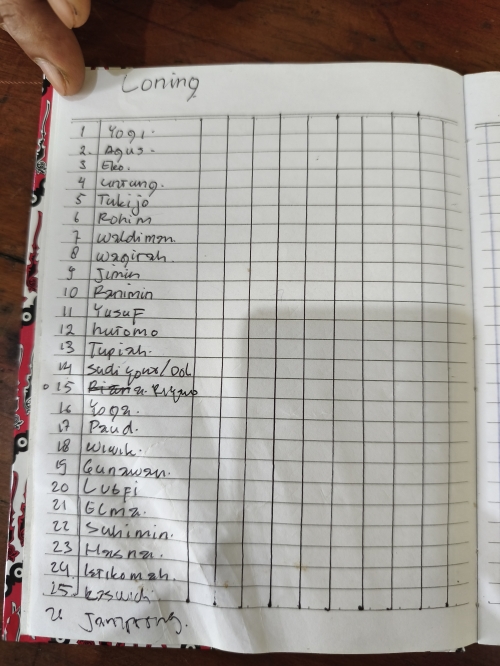 Coning
1 Yogi.
2. Agus.
3 Eko.
4 untung.
5 Tukijo
6 Rohim
7 Waldiman.
8 Wagirah.
9 Jimin
10 Ranimin
11 Yusuf
12 hutomo
13 Tupiah.
14 Sudiyono/Dol
15 Riyano
16 Yoga.
17 Paud.
18 Wiwik.
19 Gunawan.
20 Lutfi
21 Elma.
22 Suhimin.
23 Hasna.
24. Istikomah.
25. Kaswadi
26 Jamprong.